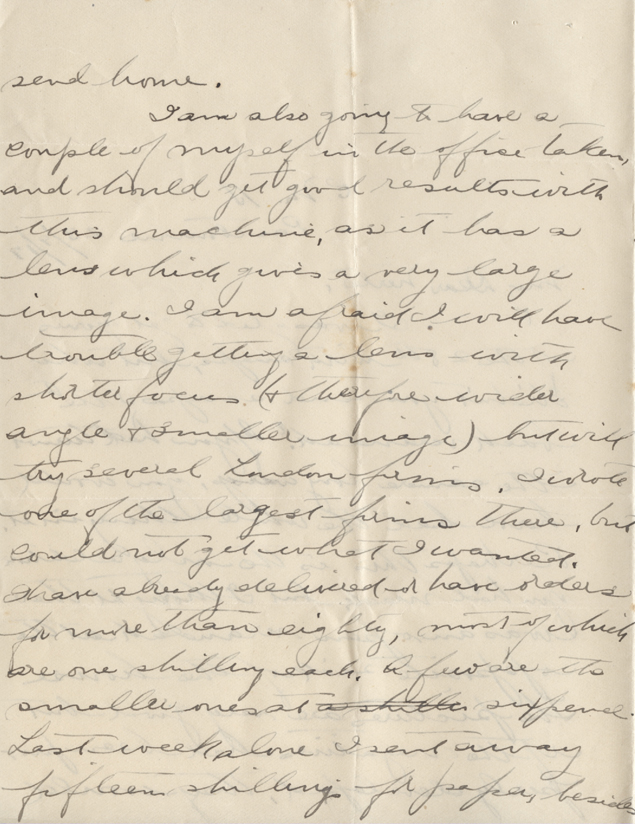 send home.
I am also going to have a
couple of myself in the office taken,
and should get good results with
this machine, as it has a
lens which gives a very large
image. I am afraid I will have
trouble getting a lens with
shorter focus (& therefore wider
angle & smaller image) but will
try several London firms. I wrote
one of the largest firms there, but
could not get what I wanted.
I have already delivered or have orders
for more than eighty, most of which
are one shilling each. A few are the
smaller ones at a shilling sixpence.
Last week alone I sent away
fifteen shillings for paper, besides